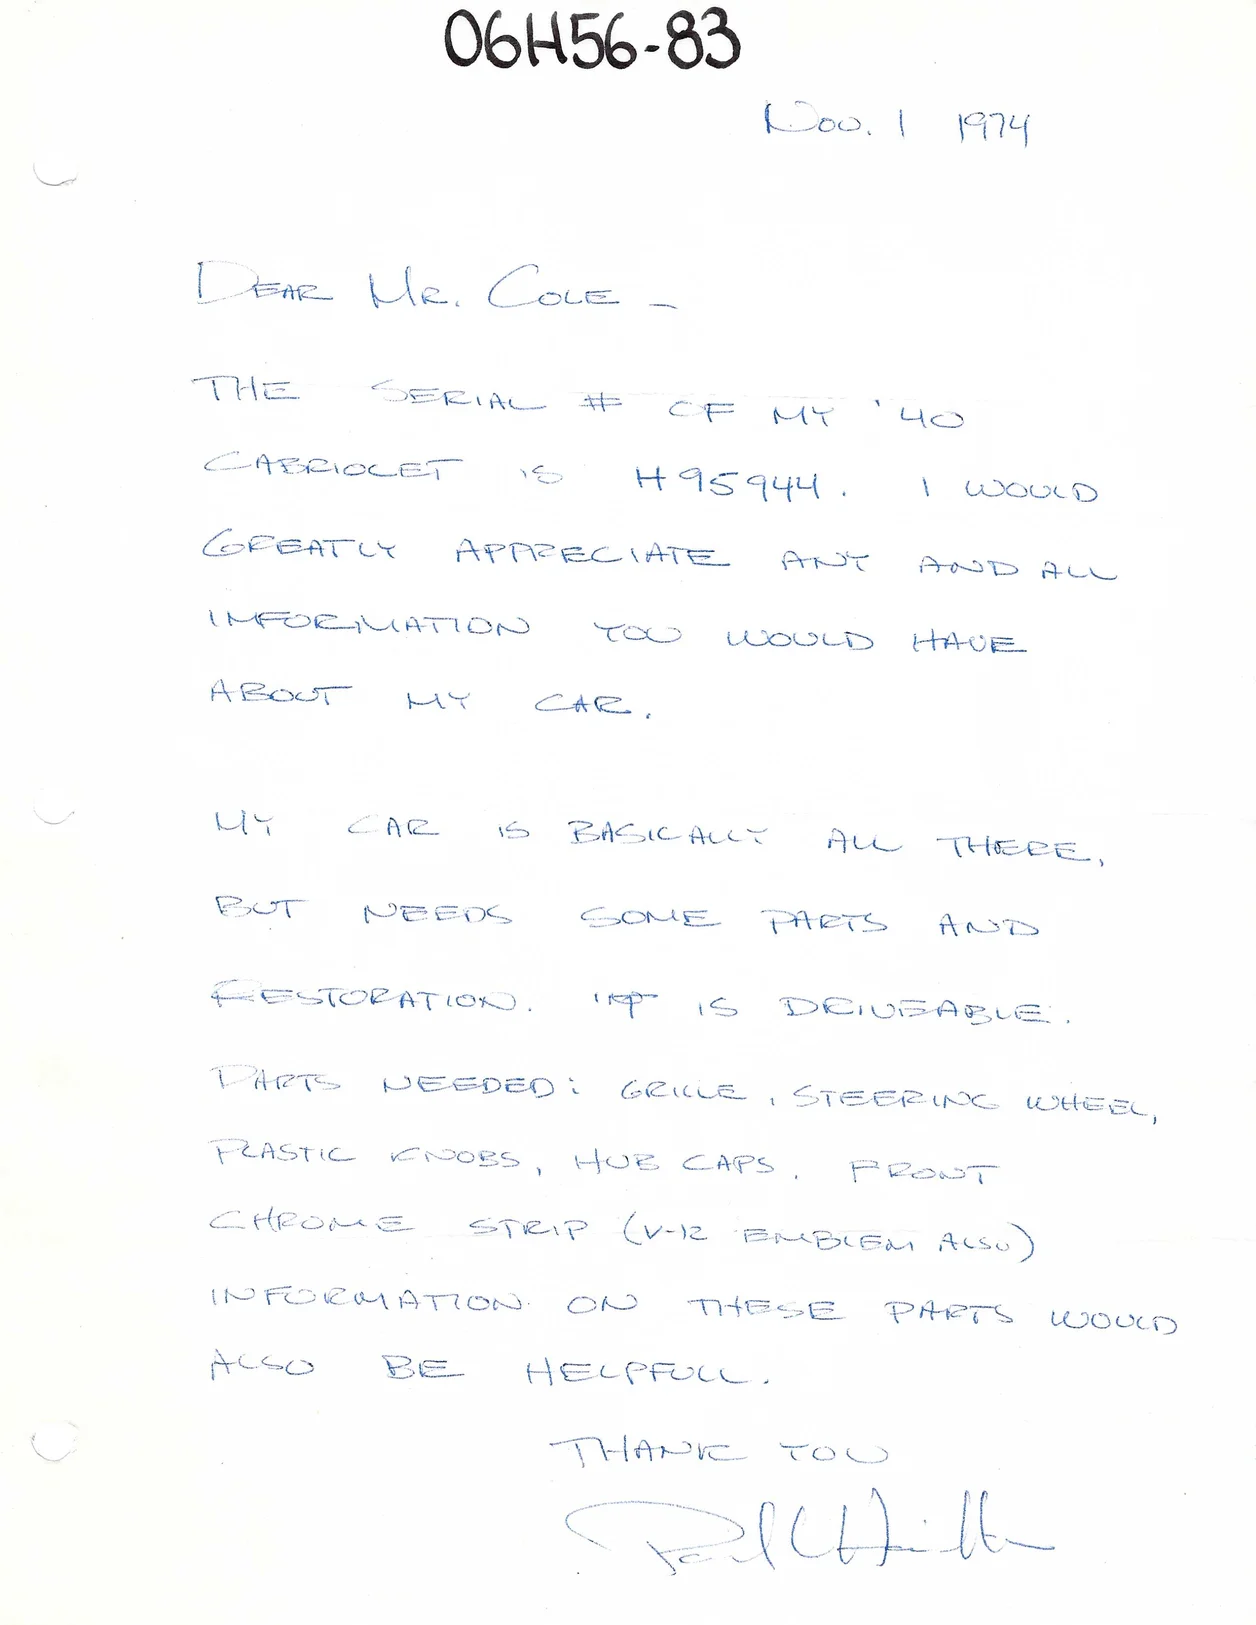 06H56-83
Nov. 1 1974
DEAR MR. COLE —
THE SERIAL # OF MY '40
CABRIOLET IS H95944. I WOULD
GREATLY APPRECIATE ANY AND ALL
INFORMATION YOU WOULD HAVE
ABOUT MY CAR.
MY CAR IS BASICALLY ALL THERE,
BUT NEEDS SOME PARTS AND
RESTORATION. IT IS DRIVEABLE.
PARTS NEEDED: GRILLE, STEERING WHEEL,
PLASTIC KNOBS, HUB CAPS. FRONT
CHROME STRIP (V-12 EMBLEM ALSO)
INFORMATION ON THESE PARTS WOULD
ALSO BE HELPFULL.
THANK YOU
Paul